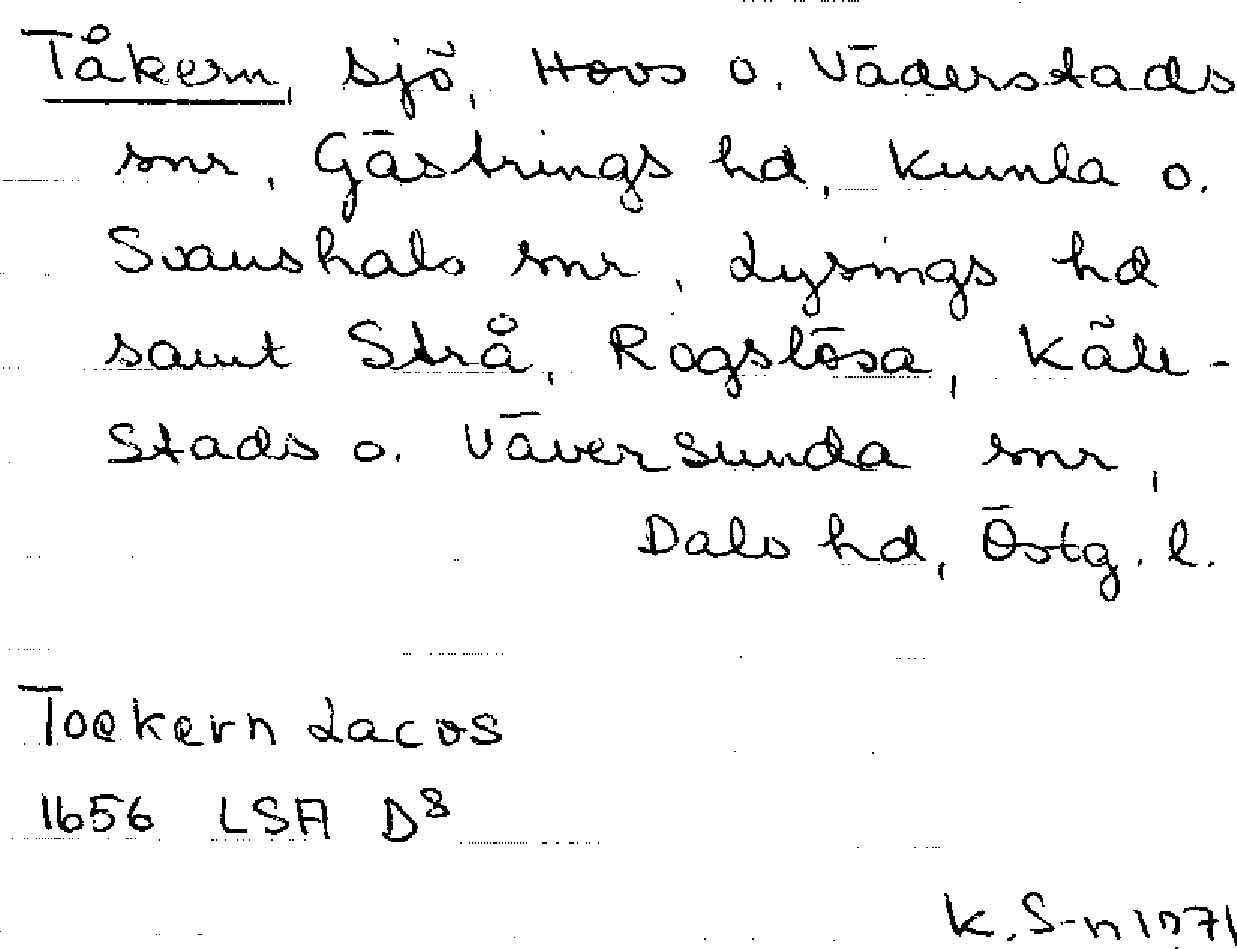 Tåkern, sjö, Hovs o. Väderstads
snr, Gästrings hd, Kumla o.
Svanshals snr, Lysings hd
samt Strå, Rogslösa, Käll-
stads o. Väversunda snr,
Dals hd, Östg. l.
Toekern Lacus
1656 LSA D8
K. S-n 1971